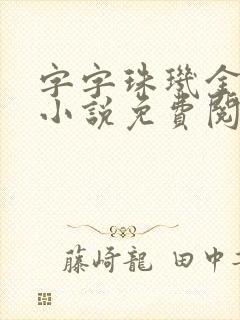 字字珠璣全
小說免費閱
藤崎龍 田中